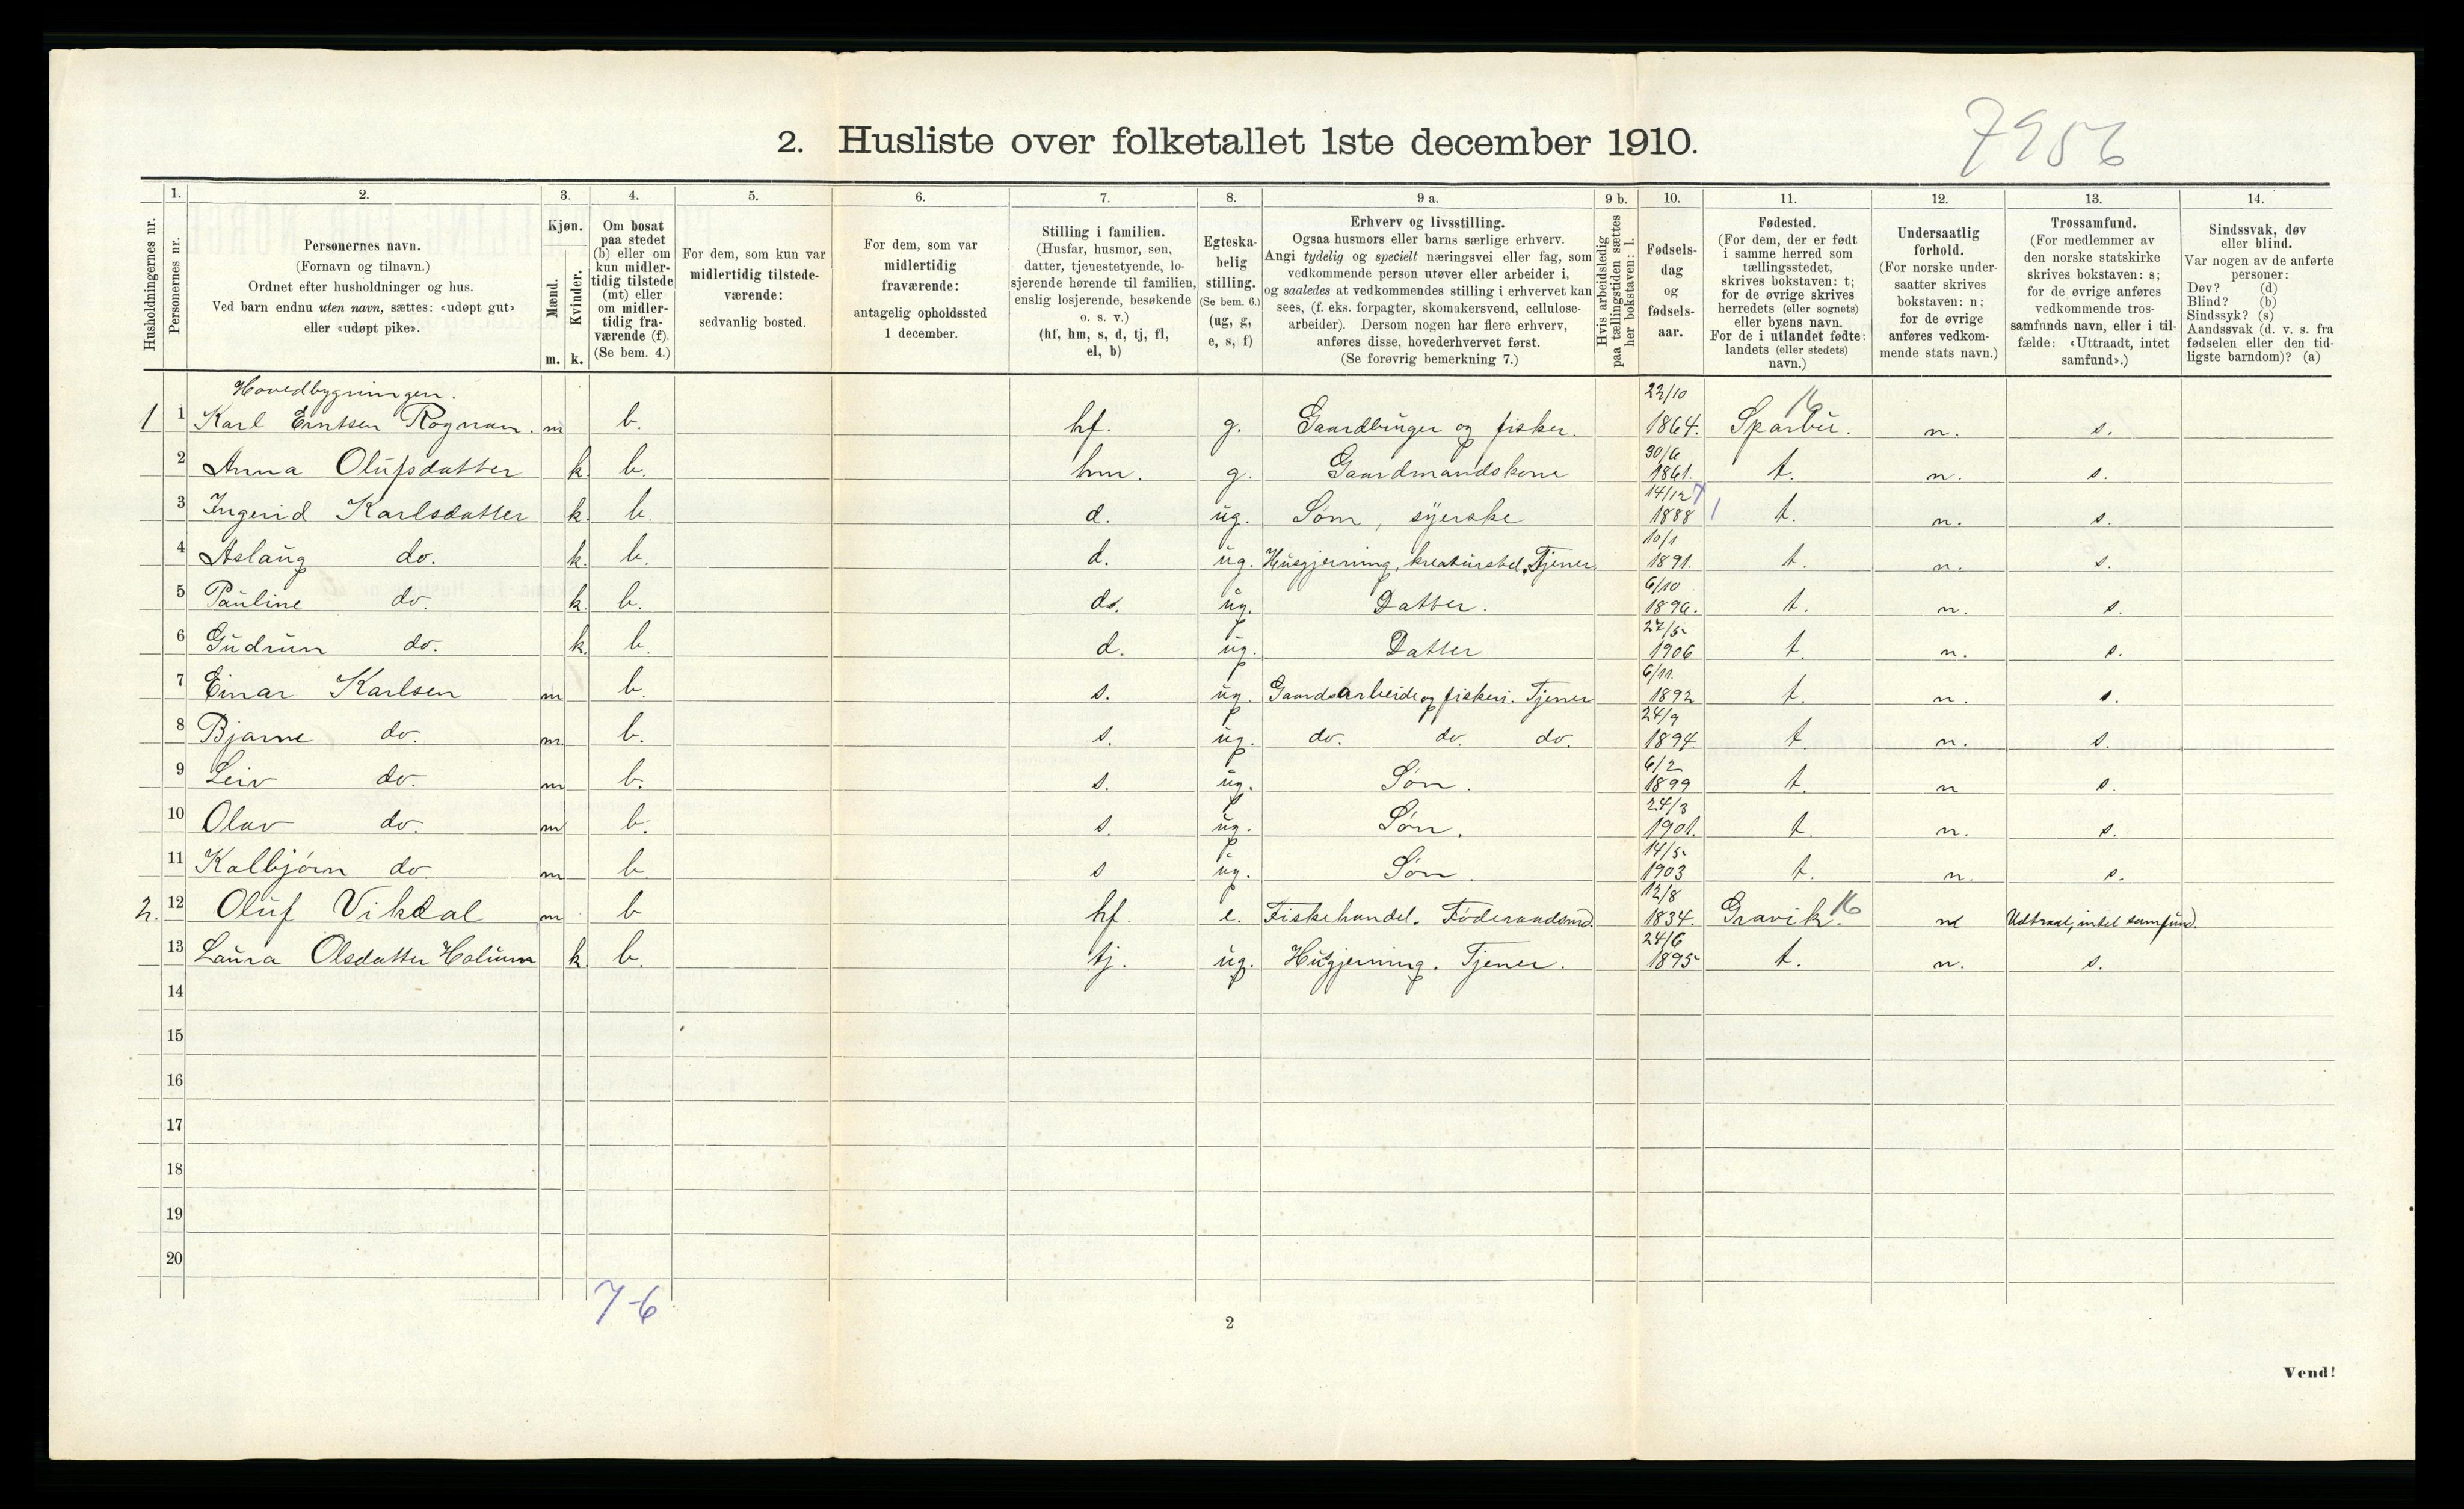 7956
2. Husliste over folketallet 1ste december 1910.
Husholdningernes nr.
1.
Personernes nr.
2.
Personernes navn.
(Fornavn og tilnavn.)
Ordnet efter husholdninger og hus.
Ved barn endnu uten navn, sættes: «udøpt gut»
eller «udøpt pike».
3.
Kjøn.
Mænd.
Kvinder.
m. k.
4.
Om bosat
paa stedet
(b) eller om
kun midler-
tidig tilstede
(mt) eller
om midler-
tidig fra-
værende (f).
(Se bem. 4.)
5.
For dem, som kun var
midlertidig tilstede-
værende:
sedvanlig bosted.
6.
For dem, som var
midlertidig
fraværende:
antagelig opholdssted
1 december.
7.
Stilling i familien.
(Husfar, husmor, søn,
datter, tjenestetyende, lo-
sjerende hørende til familien,
enslig losjerende, besøkende
o. s. v.)
(hf, hm, s, d, tj, fl,
el, b)
8.
Egteska-
belig
stilling.
(Se bem. 6.)
(ug, g,
e, s, f)
9 a.
Erhverv og livsstilling.
Ogsaa husmors eller barns særlige erhverv.
Angi tydelig og specielt næringsvei eller fag, som
vedkommende person utøver eller arbeider i,
og saaledes at vedkommendes stilling i erhvervet kan
sees, (f. eks. forpagter, skomakersvend, cellulose-
arbeider). Dersom nogen har flere erhverv,
anføres disse, hovederhvervet først.
(Se forøvrig bemerkning 7.)
9 b.
Hvis arbeidsledig
paa tællingstiden sættes
her bokstaven: l.
10.
Fødsels-
dag
og
fødsels-
aar.
11.
Fødested.
(For dem, der er født
i samme herred som
tællingsstedet,
skrives bokstaven: t;
for de øvrige skrives
herredets (eller sognets)
eller byens navn.
For de i utlandet fødte:
landets (eller stedets)
navn.)
12.
Undersaatlig
forhold.
(For norske under-
saatter skrives
bokstaven: n;
for de øvrige
anføres vedkom-
mende stats navn.)
13.
Trossamfund.
(For medlemmer av
den norske statskirke
skrives bokstaven: s;
for de øvrige anføres
vedkommende tros-
samfunds navn, eller i til-
fælde: «Uttraadt, intet
samfund».)
14.
Sindssvak, døv
eller blind.
Var nogen av de anførte
personer:
Døv? (d)
Blind? (b)
Sindssyk? (s)
Aandssvak (d. v. s. fra
fødselen eller den tid-
ligste barndom)? (a)
Hovedbygningen.
1 1 Karl Erntsen Rognan. m b. hf. g. Gaardbruger og fisker. 22/10 1864. Sparbu. 16 n. s.
2 Anna Olufsdatter k. b. hm. g. Gaardmandskone 30/6 1861. t. n. s.
3 Ingerid Karlsdatter k. b. d. ug. Søm, syerske 14/12 1888 t. n. s.
4 Aslaug do. k. b. d. ug. Husgjerning, kreaturstel. Tjener 10/1 1891. t. n. s.
5 Pauline do. k. b. d. ug. Datter. 6/10 1896. t. n. s.
6 Gudrun do. k. b. d. ug. Datter 27/5 1906 t. n. s.
7 Einar Karlsen m b. s. ug. Gaardsarbeide og fiskeri. Tjener 6/11. 1892 t. n. s.
8 Bjarne do. m. b. s. ug. do. do. do. 24/9 1894 t. n. s.
9 Leiv do. m b. s. ug. Søn. 6/2 1899 t. n s.
10 Olav do. m b. s. ug. Søn. 24/3 1901. t. n. s.
11 Kalbjørn do m b. s ug. Søn. 14/5 1903 t. n. s.
2. 12 Oluf Vikdal m b hf. e. Fiskehandel. Føderaadsmd. 12/8 1834. Gravik. 16 n Udtraat, intet samfund.
13 Laura Olsdatter Halium k. b. tj. ug. Husgjerning. Tjener. 24/6 1895 t. n. s.
14
15
16
17
18
19
20
7-6
2
Vend!